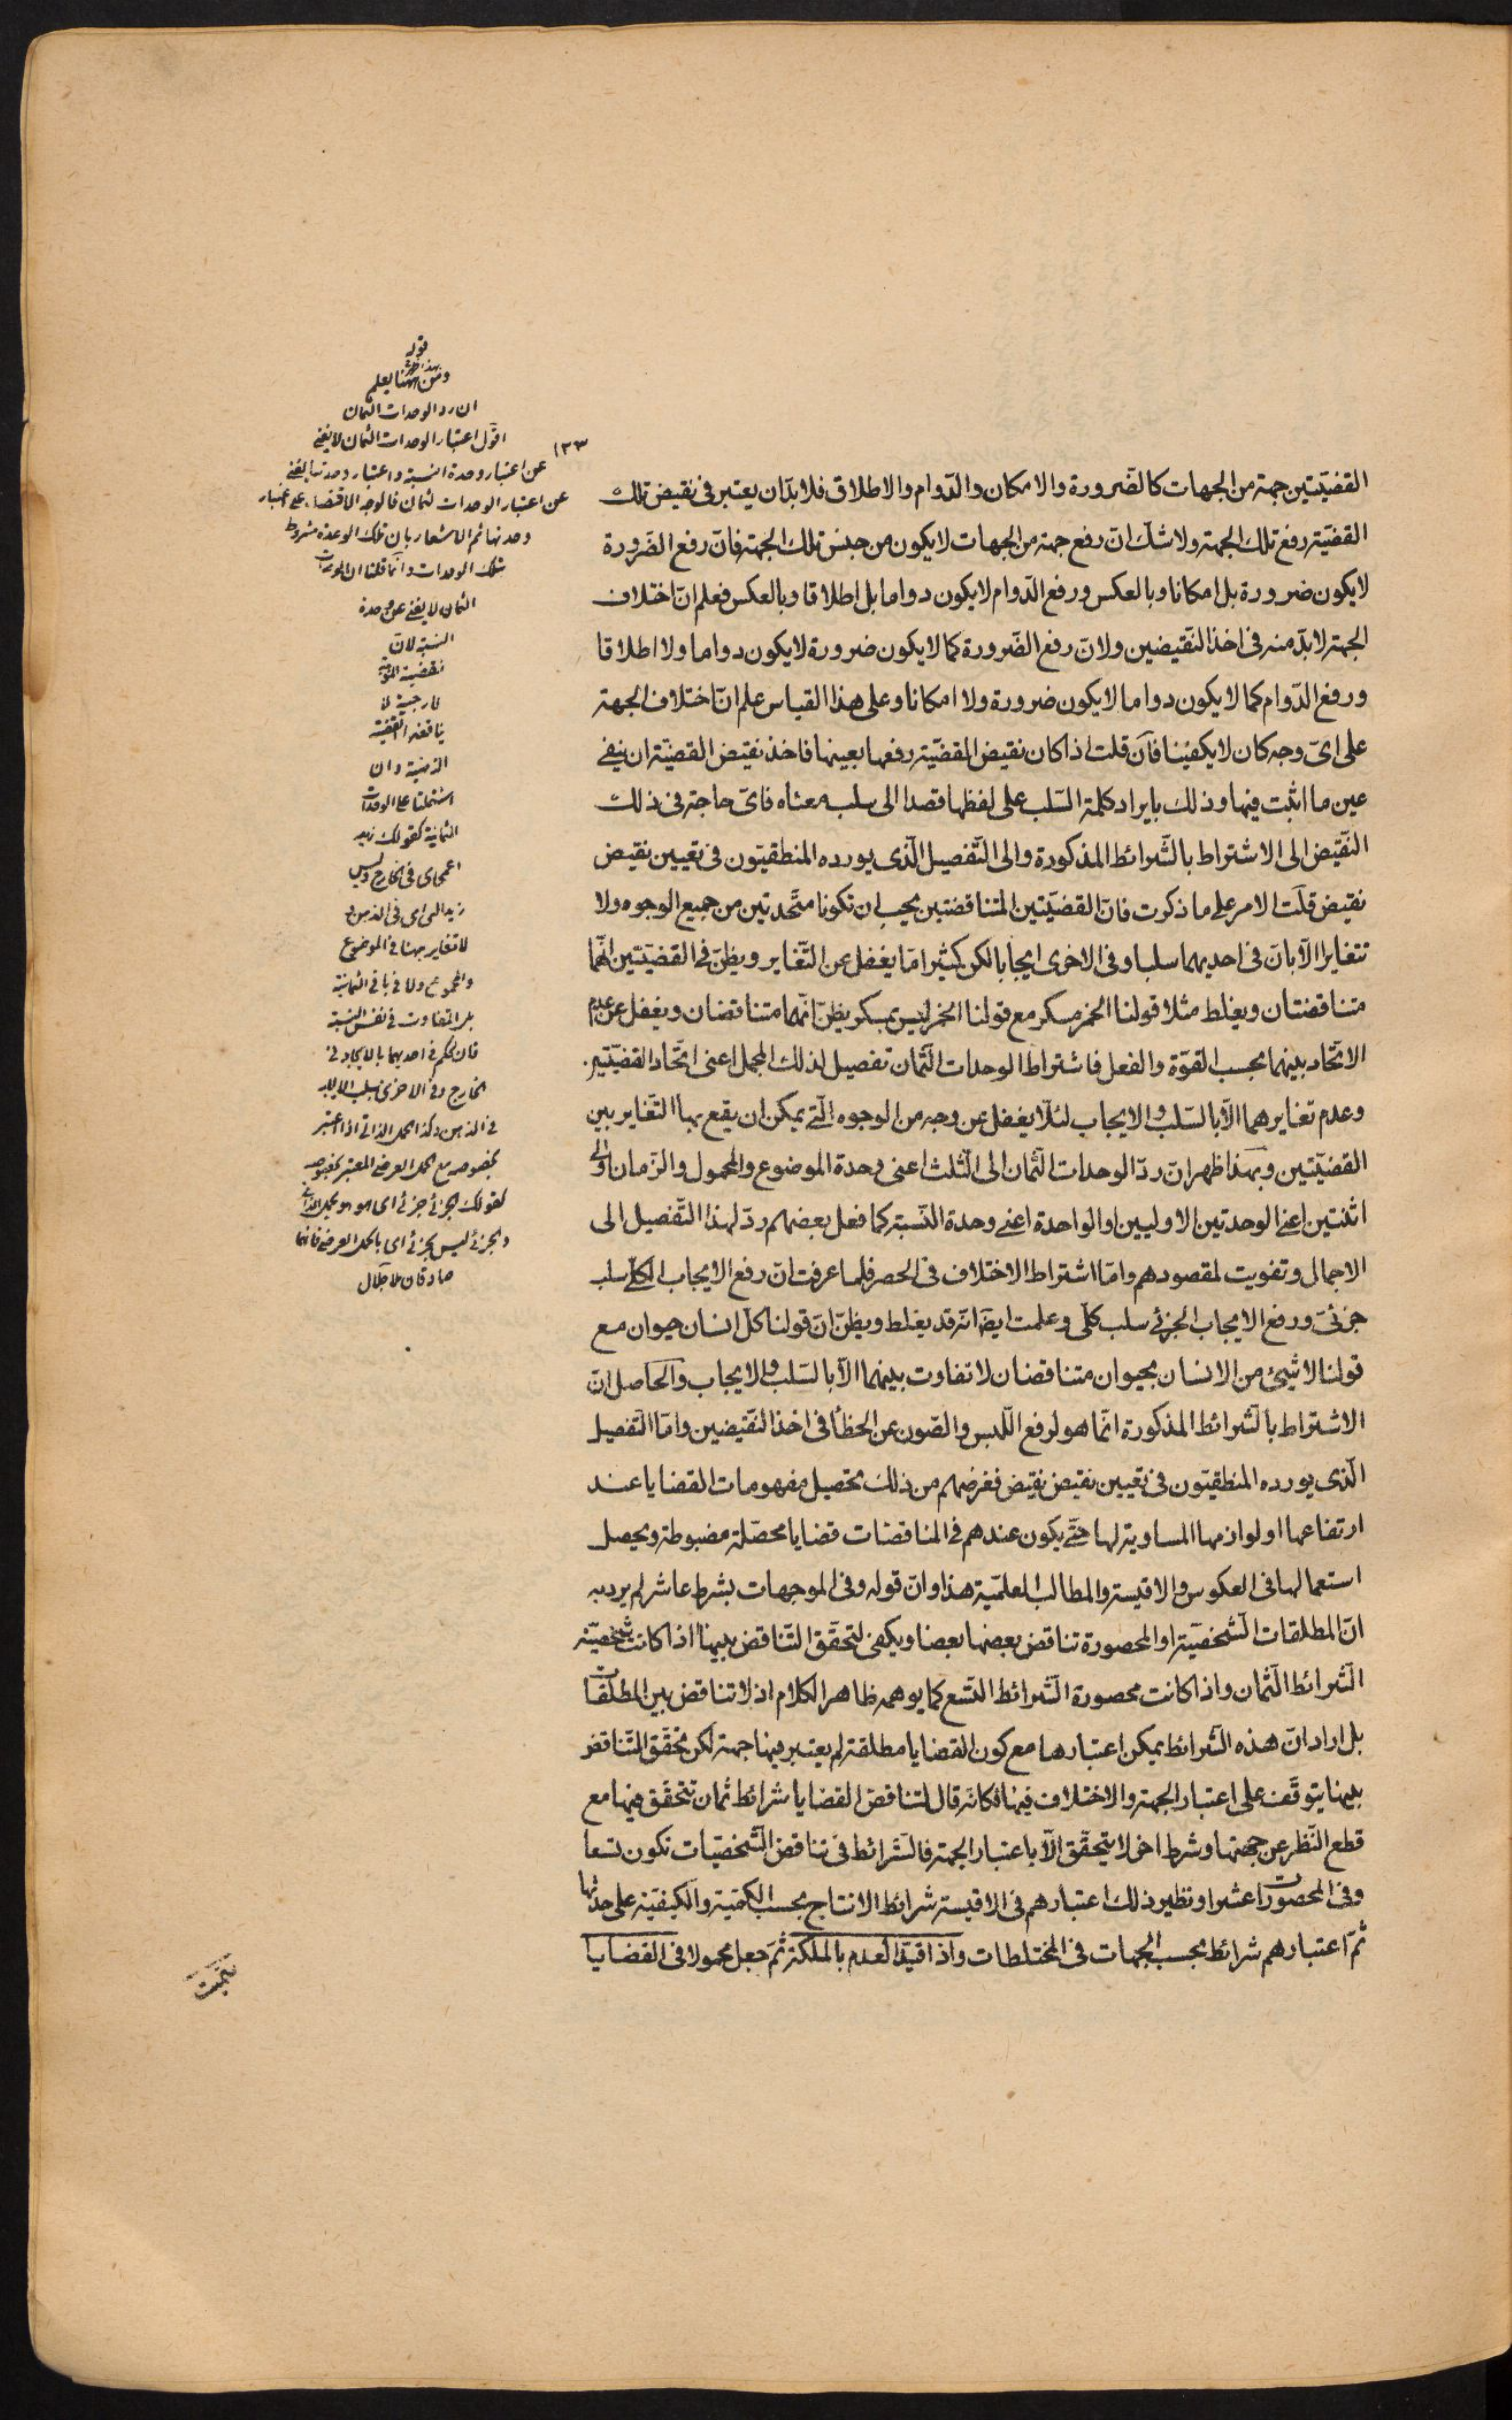 القضيّتين جهة من الجهات كالضّرورة والامكان والدّوام والاطلاق فلا بدّ ان يعتبر فى نقيض تلك
القضيّة رفع تلك الجهة ولا شكّ انّ رفع جهة من الجهات لا يكون من جنس تلك الجهة فانّ رفع الضّرورة
لا يكون ضرورة بل امكانا وبالعكس ورفع الدّوام لا يكون دواما بل اطلاقا وبالعكس فعلم انّ اختلاف
الجهة لا بدّ منه فى اخذ النّقيضين ولانّ رفع الضّرورة كما لا يكون ضرورة لا يكون دواما ولا اطلاقا
ورفع الدّوام كما لا يكون دواما لا يكون ضرورة ولا امكانا وعلى هذا القياس علم انّ اختلاف الجهة
على اىّ وجه كان لا يكفينا فآن قلت اذا كان نقيض القضيّة رفعها بعينها فاخذ نقيض القضيّة ان ينفى
عين ما اثبت فيها وذلك بايراد كلمة السّلب على لفظها قصدا الى سلب معناه فاىّ حاجة فى ذلك
النّقيض الى الاشتراط بالشّرائط المذكورة والى التّفصيل الّذى يورده المنطقيّون فى تعيين نقيض
نقيض قلت الامر على ما ذكرت فانّ القضيّتين المتناقضتين يجب ان تكونا متّحدتين من جميع الوجوه ولا
تتغايرا الّا بانّ فى احديهما سلبا وفى الاخرى ايجابا لكن كثيرا مّا يغفل عن التّغاير ويظنّ فى القضيّتين انّهما
متناقضتان ويغلط مثلا قولنا الخمر مسكر مع قولنا الخمر ليس بمسكر يظنّ انّهما متناقضان ويغفل عن عدم
الاتّحاد بينهما بحسب القوّة والفعل فاشتراط الوحدات الثّمان تفصيل لذلك المجمل اعنى اتّحاد القضيّتين
وعدم تغايرهما الّا بالسّلب والايجاب لئلّا يغفل عن وجه من الوجوه الّتى يمكن ان يقع بها التّغاير بين
القضيّتين وبهذا ظهر انّ ردّ الوحدات الثّمان الى الثّلث اعنى وحدة الموضوع والمحمول والزّمان والى
اثنتين اعنى الوحدتين الاوليين او الواحدة اعنى وحدة النّسبة كما فعل بعضهم ردّ لهذا التّفصيل الى
الاجمال وتفويت لمقصودهم وامّا اشتراط الاختلاف فى الحصر فلما عرفت انّ رفع الايجاب الكلّى سلب
جزئىّ ورفع الايجاب الجزئى سلب كلّى وعلمت ايضا انّه قد يغلط ويظنّ انّ قولنا كلّ انسان حيوان مع
قولنا لا شيئ من الانسان بحيوان متناقضان لا تفاوت بينهما الّا بالسّلب والايجاب والحاصل انّ
الاشتراط بالشّرائط المذكورة انّما هو لرفع اللّبس والصّون عن الخطأ فى اخذ النّقيضين وامّا التّفصيل
الّذى يورده المنطقيّون فى تعيين نقيض نقيض فغرضهم من ذلك تحصيل مفهومات القضايا عند
ارتفاعها او لوازمها المساوية لها حتّى يكون عندهم فى المناقضات قضايا محصّلة مضبوطة ويحصل
استعمالها فى العكوس والاقيسة والمطالب العلميّة هذا وانّ قوله وفى الموجهات بشرط عاشر لم يرد به
انّ المطلقات الشّخصيّة او المحصورة تناقض بعضها بعضا ويكفى لتحقّق التّناقض بينها اذا كانت شخصيّة
الشّرائط الثّمان واذا كانت محصورة الشّرائط التّسع كما يوهمه ظاهر الكلام اذ لا تناقض بين المطلقات
بل اراد انّ هذه الشّرائط يمكن اعتبارها مع كون القضايا مطلقة لم يعتبر فيها جهة لكن تحقّق التّناقض
بينها يتوقّف على اعتبار الجهة والاختلاف فيها فكانّه قال لتناقض القضايا شرائط ثمان تتحقّق فيها مع
قطع النّظر عن جهتها وشرط اخر لا يتحقّق الّا باعتبار الجهة فالشّرائط فى تناقض الشّخصيّات تكون تسعا
وفى المحصورات عشرا ونظير ذلك اعتبارهم فى الاقيسة شرائط الانتاج بحسب الكميّة والكيفيّة على حدتها
ثمّ اعتبارهم شرائط بحسب الجهات فى المختلطات واذا قيّد العدم بالملكة ثمّ جعل محمولا فى القضايا
١٣٣
قوله
وبهذا ظهر
ومن ههنا يعلم
ان رد الوحدات الثمان
اقول اعتبار الوحدات الثمان لا يغنى
عن اعتبار وحدة النسبة واعتبار وحدتها يغنى
عن اعتبار الوحدات الثمان فالوجه الاقتصار على اعتبار
وحدتها ثم الاشعار بان تلك الوحدة مشروط
بتلك الوحدات وانما قلنا ان الوحدات
الثمان لا يغنى عن وحدة
النسبة لان
القضية
الخارجية لا
يناقضه القضية
الذهنية وان
اشتملتا على الوحدات
الثمانية كقولك زيد
اعمى اى فى الخارج وليس
زيد اعمى اى فى الذهن
لا تغاير ههنا فى الموضوع
والمحمول ولا فى باقى الثمانية
بل التفاوت فى نفس النسبة
فان الحكم فى احديهما بالايجاب فى
الخارج وفى الاخرى بسلب
فى الذهن وكذا الحمل الذاتى اذا اعتبر
بخصوصه مع الحمل العرضى المعتبر بخصوصه
كقولك الجزئى جزئى اى هو هو بحمل الذاتى
والجزئى ليس بجزئى اى بالحمل العرضى فانهما
صادقان